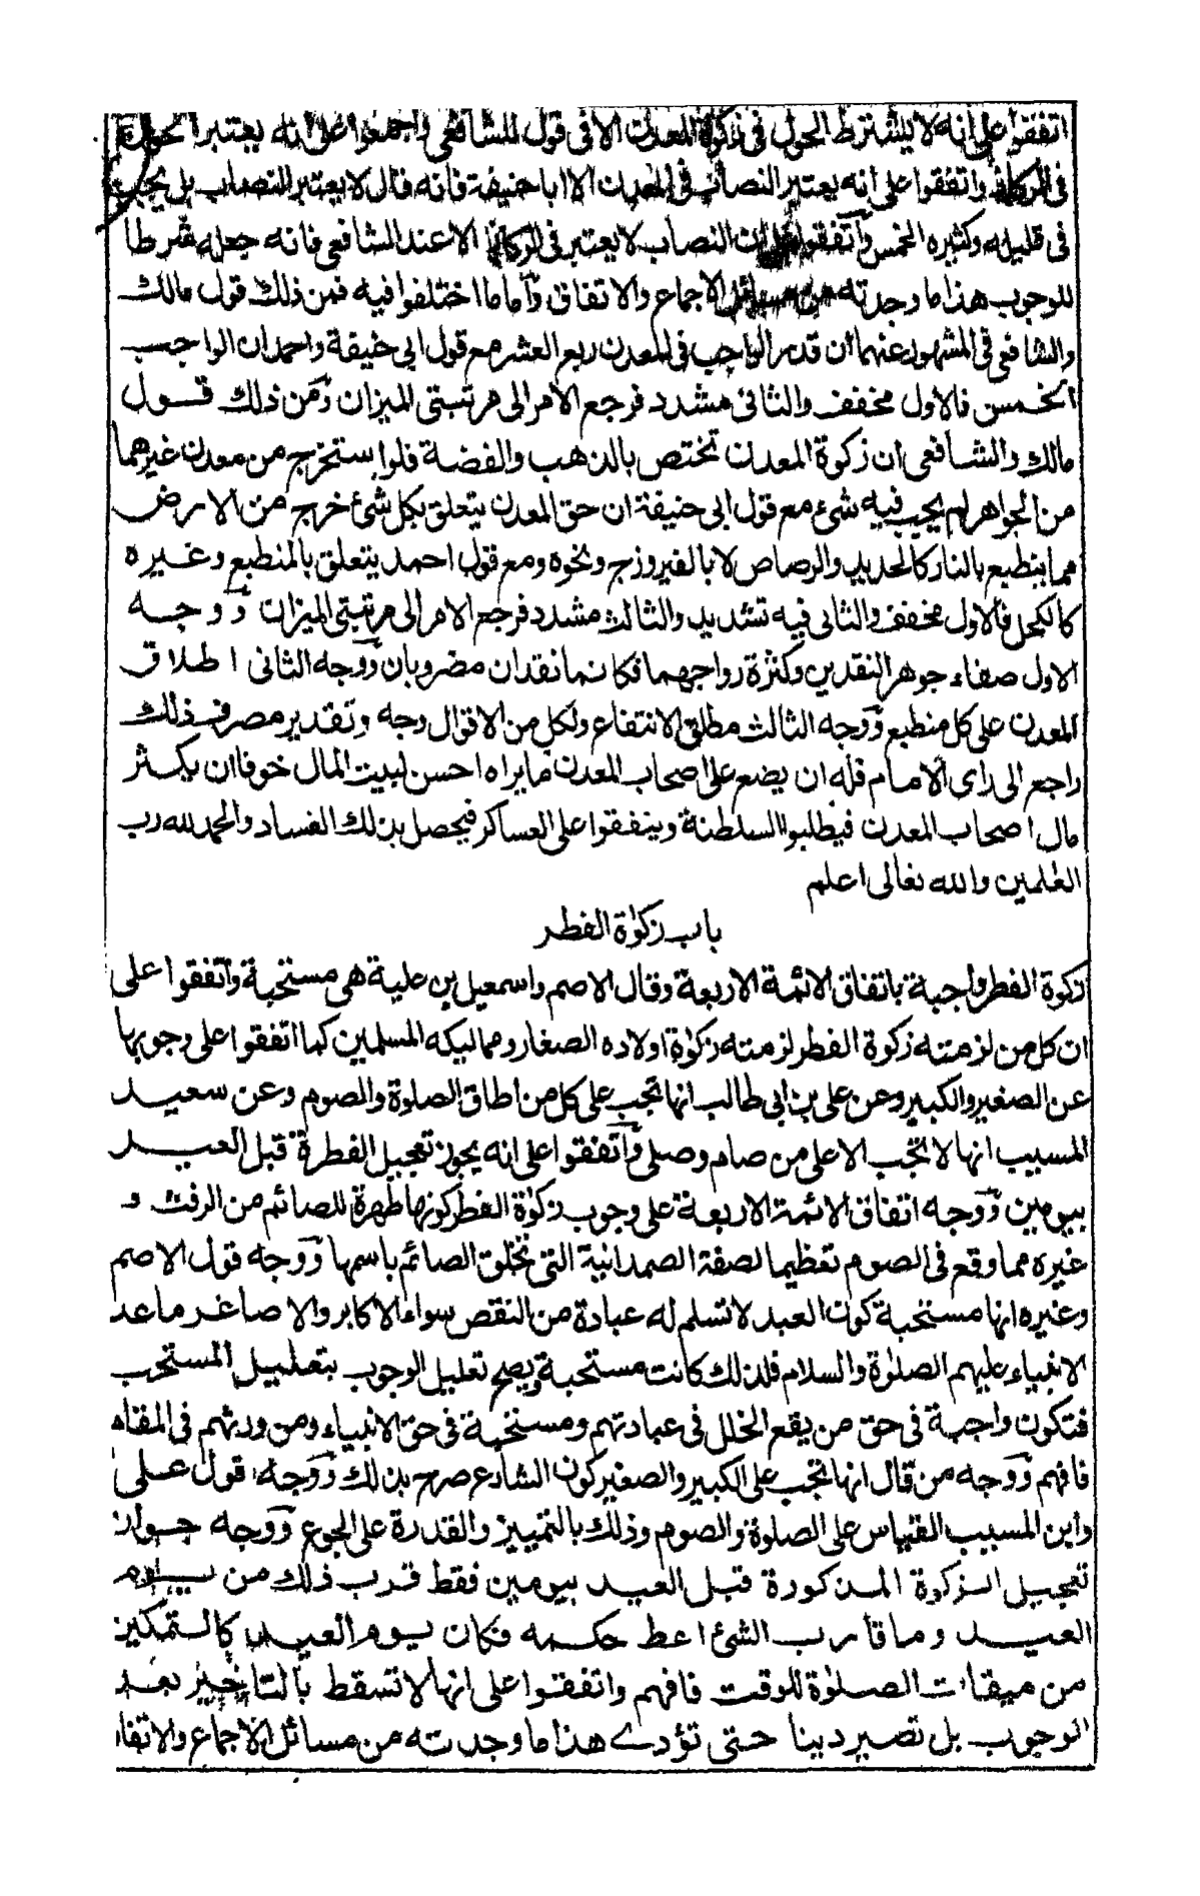 اتفقوا على انه لا يشترط الحول فى زكوة المعدن الا فى قول للشافعى واجمعوا على انه يعتبر الحول
فى الركاز واتفقوا على انه يعتبر النصاب فى المعدن الا ابا حنيفة فانه قال لا يعتبر النصاب بل يجب
فى قليله وكثيره الخمس واتفقوا على ان النصاب لا يعتبر فى الركاز الا عند الشافعى فانه جعله شرطا
للوجوب هذا ما وجدته من مسائل الاجماع والاتفاق واما ما اختلفوا فيه فمن ذلك قول مالك
والشافعى فى المشهور عنهما ان قدر الواجب فى المعدن ربع العشر مع قول ابى حنيفة واحمد ان الواجب
الخمس فالاول مخفف والثانى مشدد فرجع الامر الى مرتبتى الميزان ومن ذلك قول
مالك والشافعى ان زكوة المعدن تختص بالذهب والفضة فلو استخرج من معدن غيرهما
من الجواهر لم يجب فيه شئ مع قول ابى حنيفة ان حق المعدن يتعلق بكل شئ خرج من الارض
مما ينطبع بالنار كالحديد والرصاص لا بالفيروزج ونحوه ومع قول احمد يتعلق بالمنطبع وغيره
كالكحل فالاول مخفف والثانى فيه تشديد والثالث مشدد فرجع الامر الى مرتبتى الميزان ووجه
الاول صفاء جوهر النقدين وكثرة رواجهما فكانما نقدان مضروبان ووجه الثانى اطلاق
المعدن على كل منطبع ووجه الثالث مطلق الانتفاع ولكل من الاقوال وجه وتقدير مصرف ذلك
راجع الى راى الامام فله ان يضع على اصحاب المعدن ما يراه احسن لبيت المال خوفا ان يكثر
مال اصحاب المعدن فيطلبوا السلطنة وينفقوا على العساكر فيحصل بذلك الفساد والحمد لله رب
العلمين والله تعالى اعلم
باب زكوٰة الفطر
زكوة الفطر واجبة باتفاق الائمة الاربعة وقال الاصم واسمعيل بن علية هى مستحبة واتفقوا على
ان كل من لزمته زكوة الفطر لزمته زكوٰة اولاده الصغار ومماليكه المسلمين كما اتفقوا على وجوبها
عن الصغير والكبير وعن على بن ابى طالب انها تجب على كل من اطاق الصلوة والصوم وعن سعيد
المسيب انها لا تجب الا على من صام وصلى واتفقوا على انه يجوز تعجيل الفطرة قبل العيد
بيومين ووجه اتفاق الائمة الاربعة على وجوب زكوٰة الفطر كونها طهرة للصائم من الرفث و
غيره مما وقع فى الصوم تعظيما لصفة الصمدانية التى تخلق الصائم باسمها ووجه قول الاصم
وغيره انها مستحبة كون العبد لا تسلم له عبادة من النقص سواء الاكابر والاصاغر ما عد
الانبياء عليهم الصلوٰة والسلام فلذلك كانت مستحبة ويصح تعليل الوجوب بتعليل المستحب
فتكون واجبة فى حق من يقع الخلل فى عبادتهم ومستحبة فى حق الانبياء ومن ورثهم فى المقام
فافهم ووجه من قال انها تجب على الكبير والصغير كون الشارع صرح بذلك ووجه قول على
وابن المسيب القياس على الصلوة والصوم وذلك بالتمييز والقدرة على الجوع ووجه جواز
تعجيل الزكوة المذكورة قبل العيد بيومين فقط قرب ذلك من يوم
العيد وما قارب الشئ اعط حكمه فكان يوم العيد كالتمكين
من ميقات الصلوٰة للوقت فافهم واتفقوا على انها لا تسقط بالتاخير بعد
الوجوب بل تصير دينا حتى تؤدے هذا ما وجدته من مسائل الاجماع والاتفا